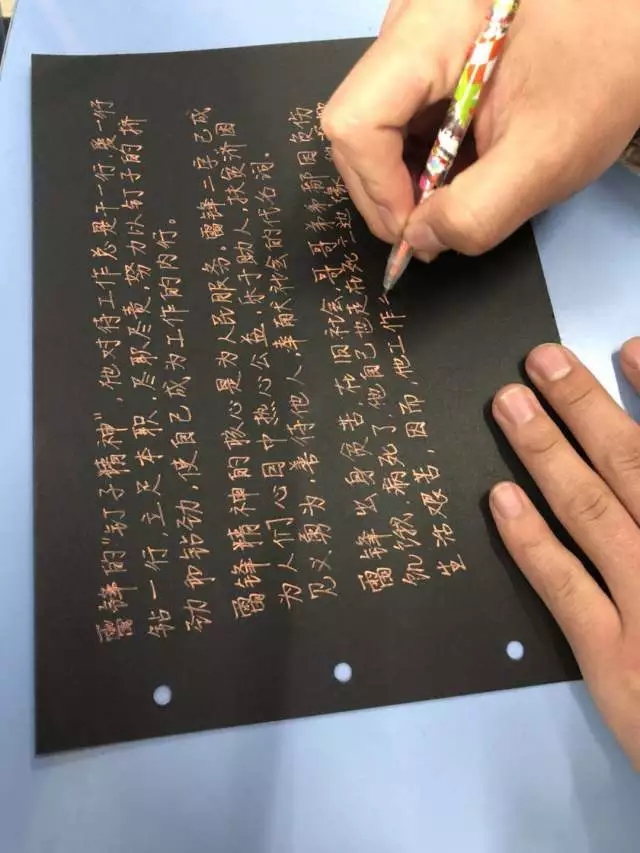 雷锋的“钉子精神”，他对待工作总是干一行，爱一行
钻一行，立足本职，尽职尽责，努力以钉子的挤
劲和钻劲，使自己成为工作的内行。
雷锋精神的核心是为人民服务。雷锋二字已成
为人们心目中热心公益，乐于助人，扶贫济困
见义勇为，善待他人，奉献社会的代名词。
雷锋出身贫苦，在旧社会，哥哥弟弟都因贫病
饥饿，病死了，他自己也是在死亡边缘
生活艰苦，因而，他工作